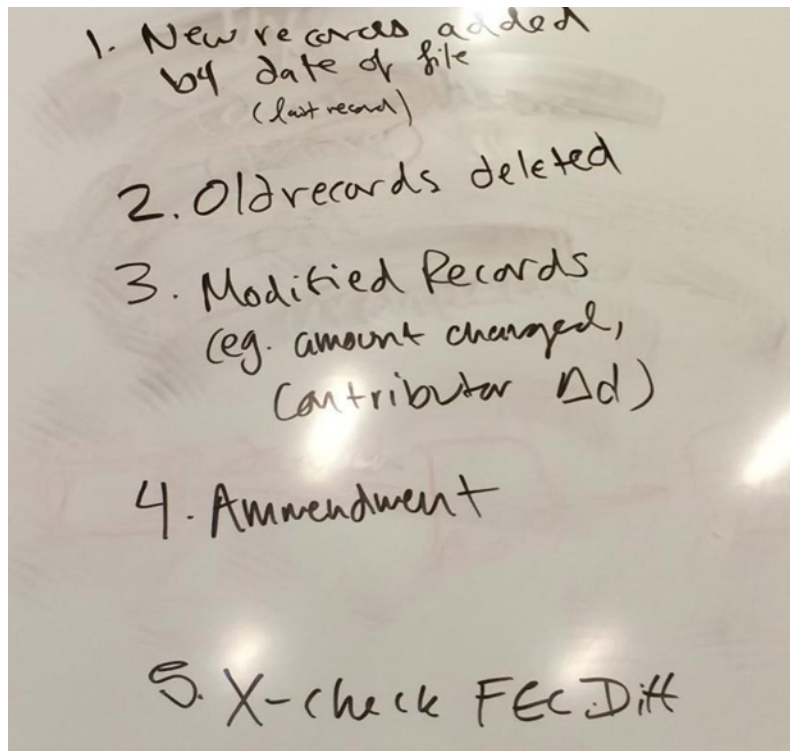 1. New records added
by date of file
(last record)
2. Old records deleted
3. Modified Records
(eg. amount changed,
Contributor Δd)
4. Ammendment
5. X-check FEC Diff